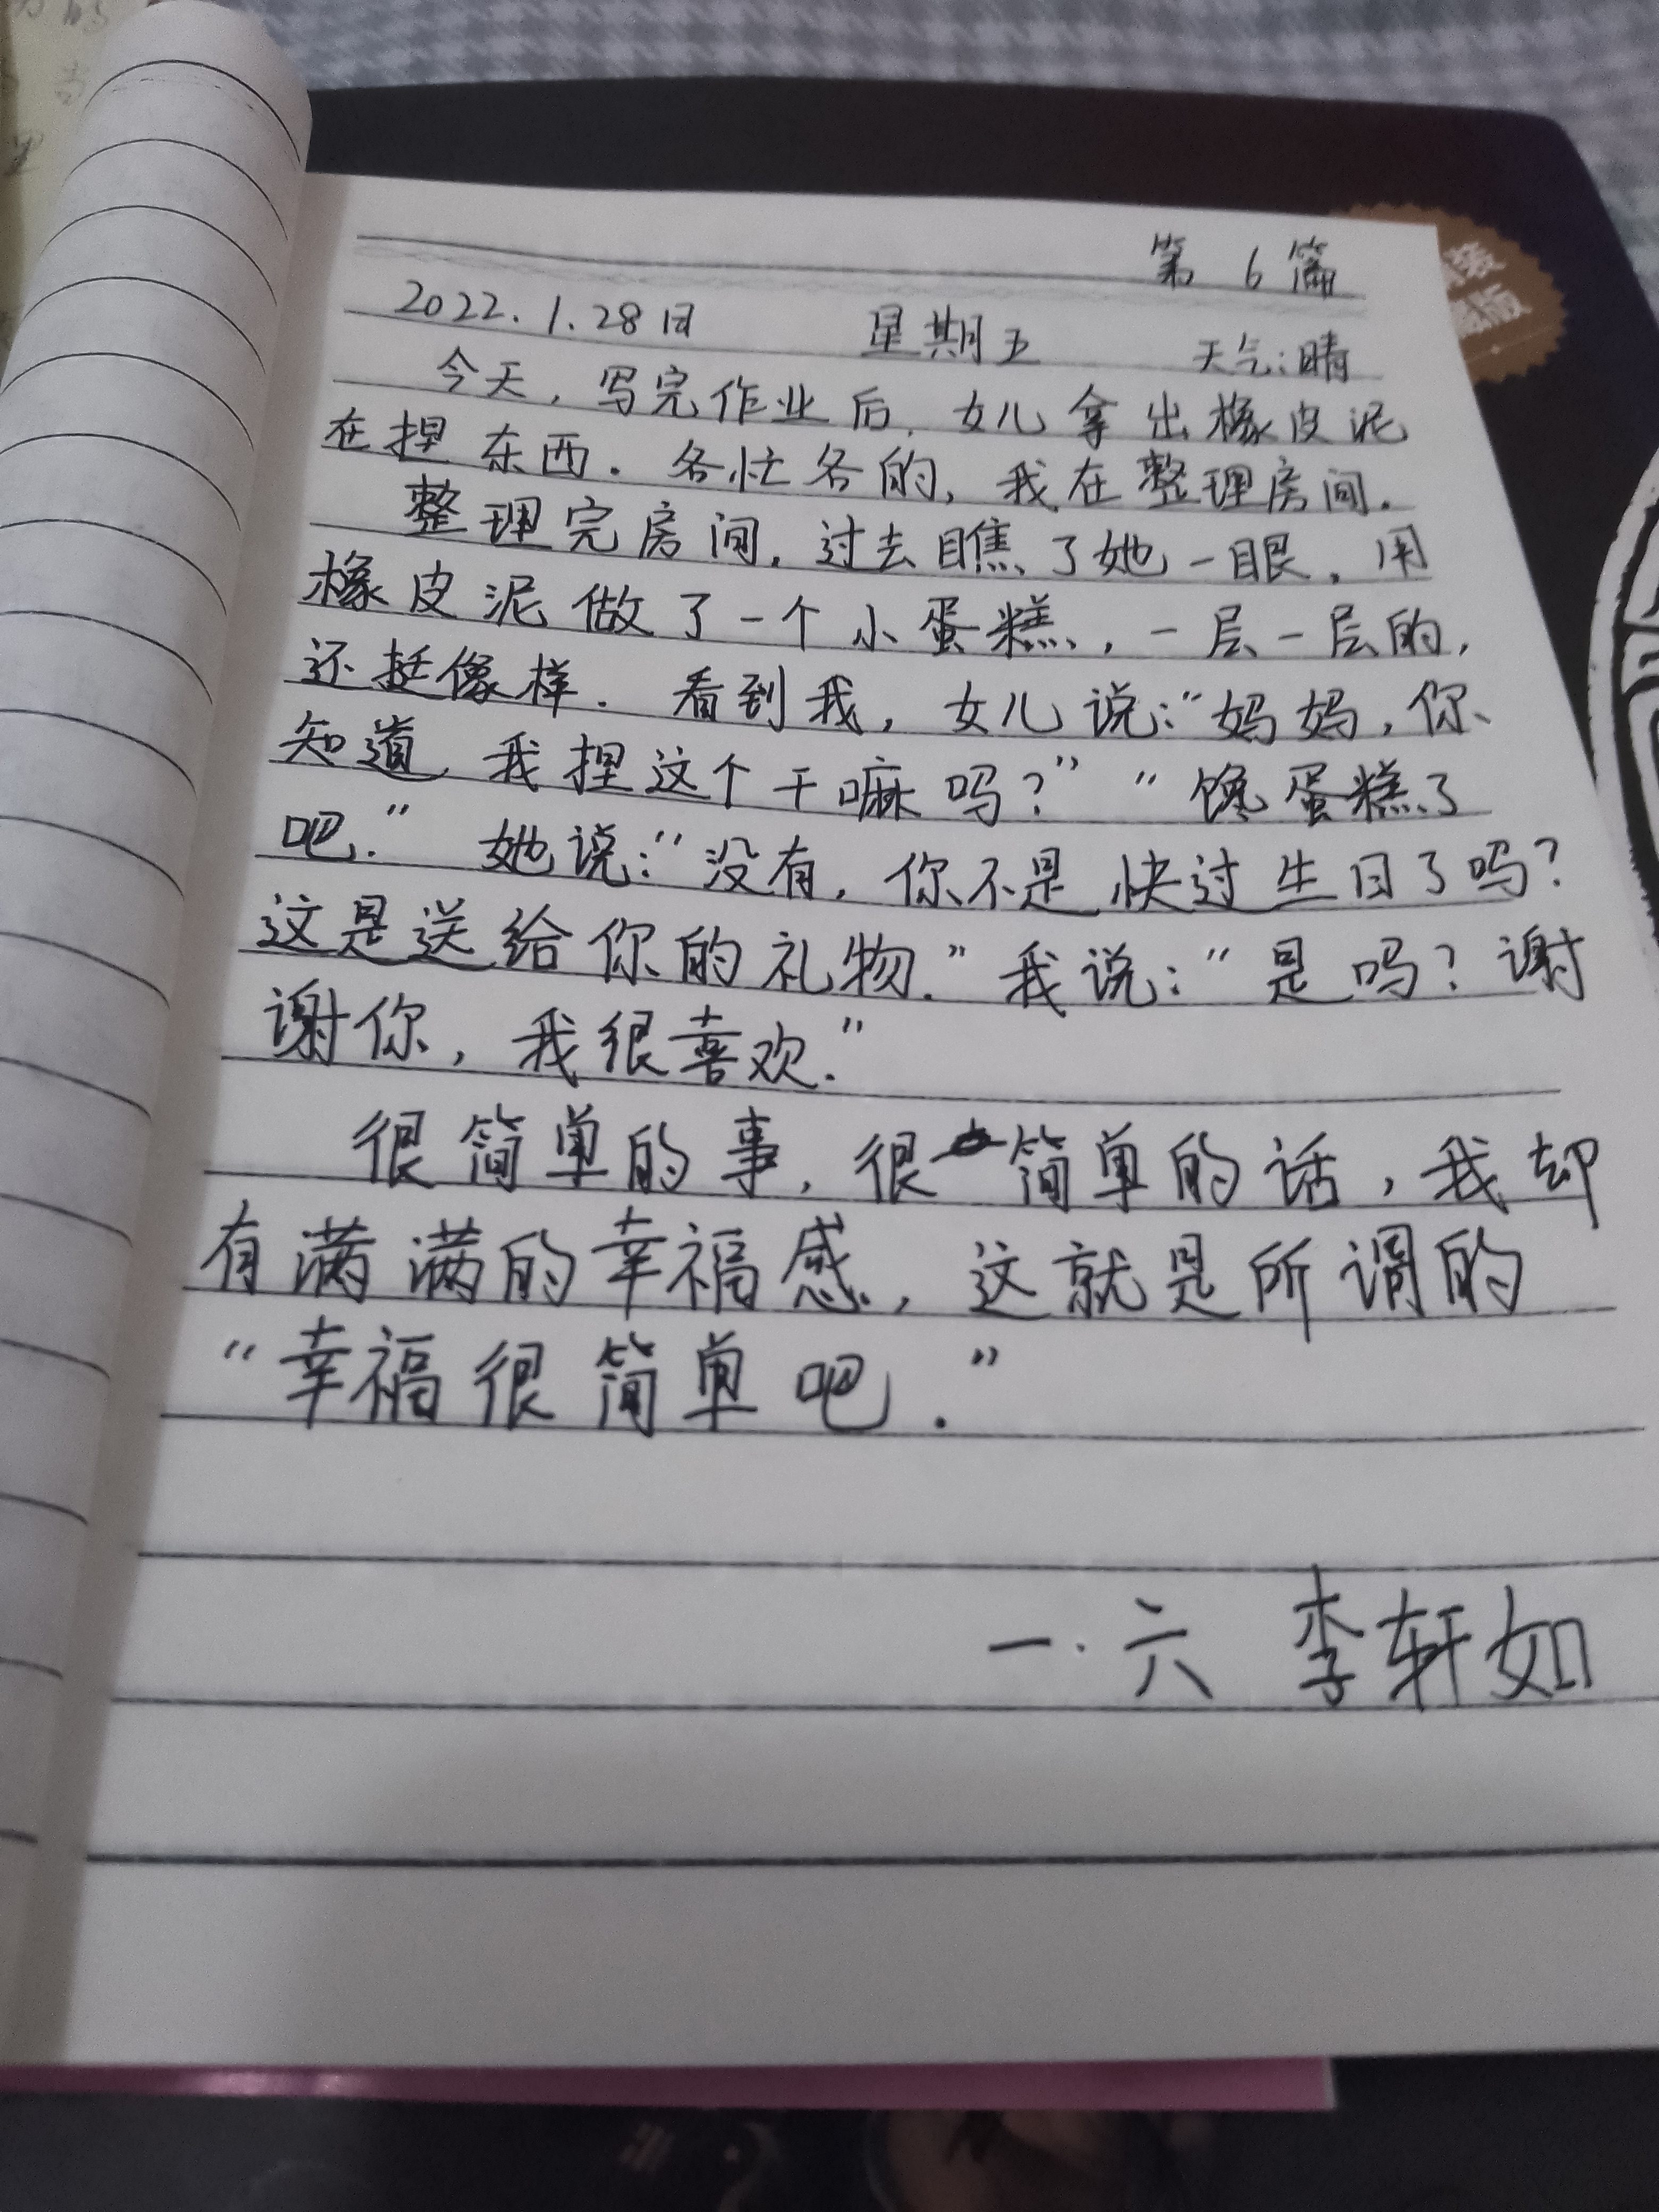 第 6 篇
2022.1.28日 星期五 天气:晴
今天,写完作业后,女儿拿出橡皮泥
在捏东西.各忙各的,我在整理房间.
整理完房间,过去瞧了她一眼,用
橡皮泥做了一个小蛋糕,一层一层的,
还挺像样.看到我,女儿说:"妈妈,你
知道,我捏这个干嘛吗?""馋蛋糕了
吧."她说:"没有,你不是快过生日了吗?
这是送给你的礼物."我说:"是吗?谢
谢你,我很喜欢."
很简单的事,很简单的话,我却
有满满的幸福感,这就是所谓的
"幸福很简单吧."
一.六 李轩如